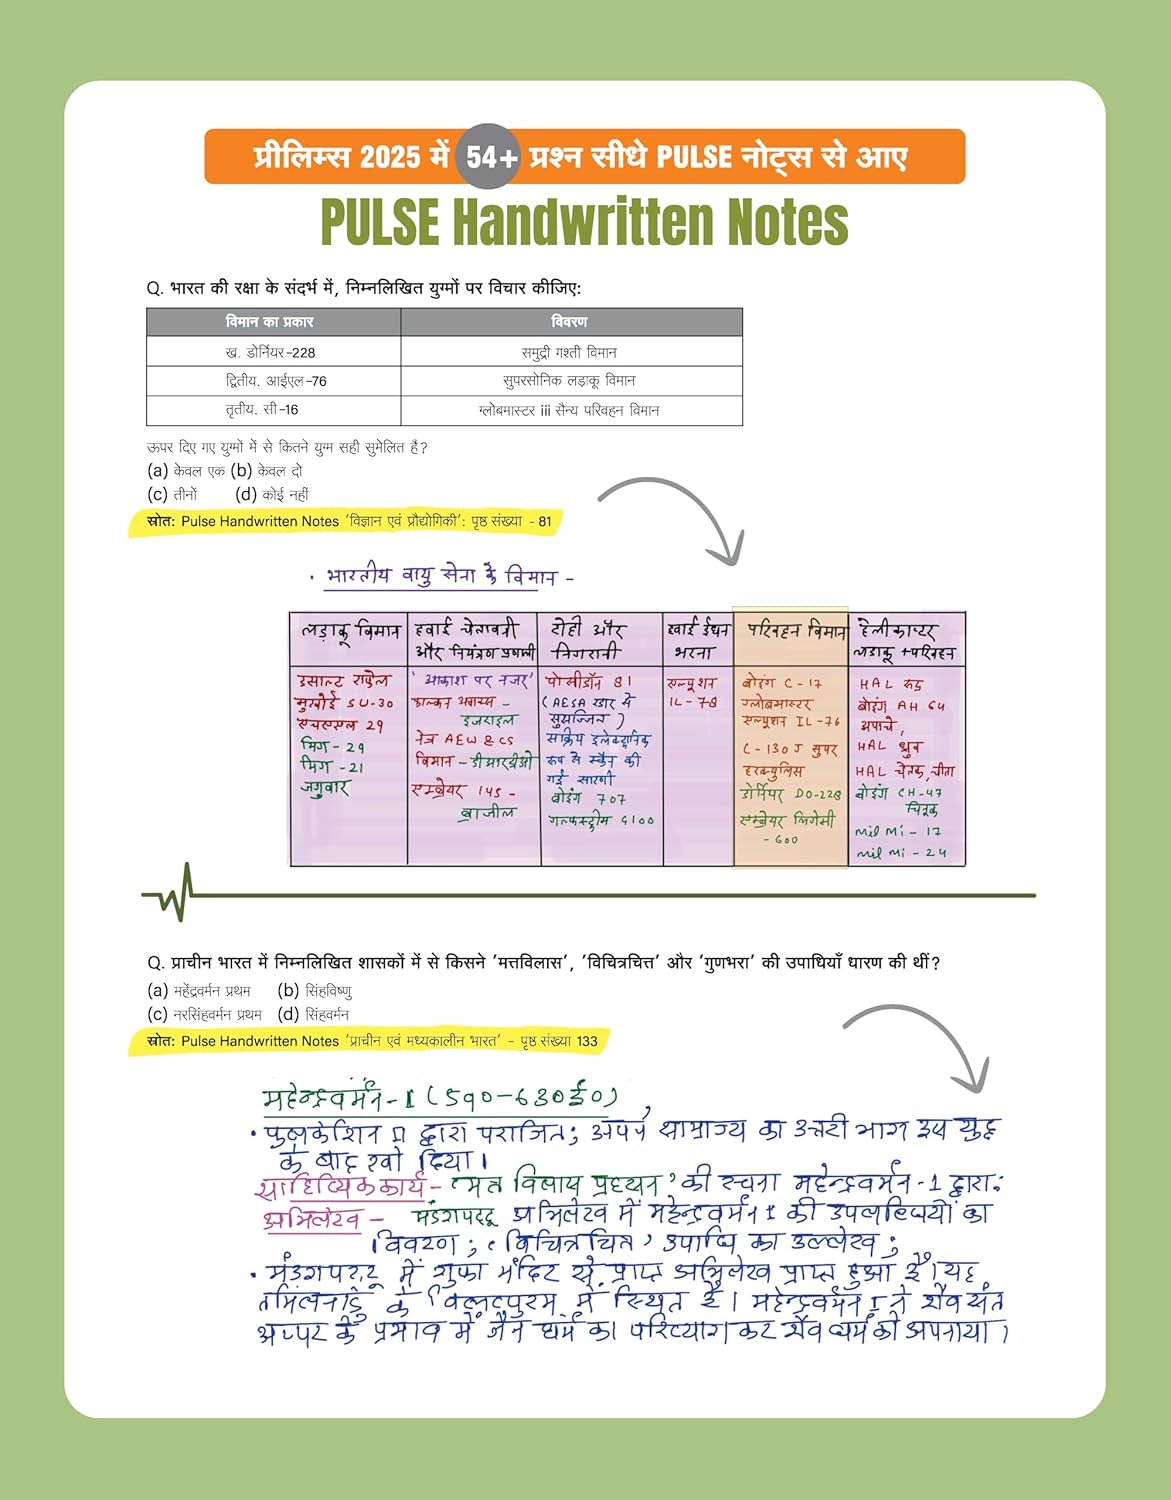 प्रीलिम्स 2025 में 54+ प्रश्न सीधे PULSE नोट्स से आए
PULSE Handwritten Notes
Q. भारत की रक्षा के संदर्भ में, निम्नलिखित युग्मों पर विचार कीजिए:
विमान का प्रकार विवरण
ख. डोर्नियर-228 समुद्री गश्ती विमान
द्वितीय. आईएल-76 सुपरसोनिक लड़ाकू विमान
तृतीय. सी-16 ग्लोबमास्टर iii सैन्य परिवहन विमान
ऊपर दिए गए युग्मों में से कितने युग्म सही सुमेलित हैं?
(a) केवल एक (b) केवल दो
(c) तीनों (d) कोई नहीं
स्रोत: Pulse Handwritten Notes 'विज्ञान एवं प्रौद्योगिकी': पृष्ठ संख्या - 81
· भारतीय वायु सेना के विमान -
लड़ाकू विमान
डसाल्ट राफेल
सुखोई SU-30
एचएएल 29
मिग - 29
मिग - 21
जगुवार
हवाई चेतावनी
और नियंत्रण प्रणाली
'आकाश पर नजर'
फाल्कन अवाक्स -
इजराइल
नेत्र AEW & CS
विमान - डीआरडीओ
एम्ब्रेयर 145 -
ब्राजील
टोही और
निगरानी
पोसीडॉन 81
(AESA रडार से
सुसज्जित)
सक्रिय इलेक्ट्रानिक
रूप से स्कैन की
गई सारणी
बोइंग 707
गल्फस्ट्रीम G100
हवाई ईंधन
भरना
इल्यूशन
IL - 78
परिवहन विमान
बोइंग C - 17
ग्लोबमास्टर
इल्यूशन IL - 76
C - 130 J सुपर
हरक्युलिस
डोर्नियर DO-228
एम्ब्रेयर लिगेसी
- 600
हेलीकाप्टर
लड़ाकू + परिवहन
HAL रुद्र
बोइंग AH 64
अपाचे,
HAL ध्रुव
HAL चेतक, चीता
बोइंग CH-47
चिनूक
Mil Mi - 17
Mil Mi - 24
Q. प्राचीन भारत में निम्नलिखित शासकों में से किसने 'मत्तविलास', 'विचित्रचित्त' और 'गुणभरा' की उपाधियाँ धारण की थीं?
(a) महेंद्रवर्मन प्रथम (b) सिंहविष्णु
(c) नरसिंहवर्मन प्रथम (d) सिंहवर्मन
स्रोत: Pulse Handwritten Notes 'प्राचीन एवं मध्यकालीन भारत' - पृष्ठ संख्या 133
महेन्द्रवर्मन - I (590-630ई०)
· पुलकेशिन II द्वारा पराजित; अपने साम्राज्य का उत्तरी भाग इस युद्ध
के बाद खो दिया।
साहित्यिक कार्य - 'मत्त विलास प्रहसन' की रचना महेन्द्रवर्मन - 1 द्वारा;
अभिलेख - मंडगपट्टू अभिलेख में महेन्द्रवर्मन I की उपलब्धियों का
विवरण; 'विचित्रचित' उपाधि का उल्लेख;
· मंडगपट्टू में गुफा मंदिर से प्राप्त अभिलेख प्राप्त हुआ है। यह
तमिलनाडु के विलुप्पुरम में स्थित है। महेन्द्रवर्मन I ने शैव संत
अप्पर के प्रभाव में जैन धर्म का परित्याग कर शैव धर्म को अपनाया।